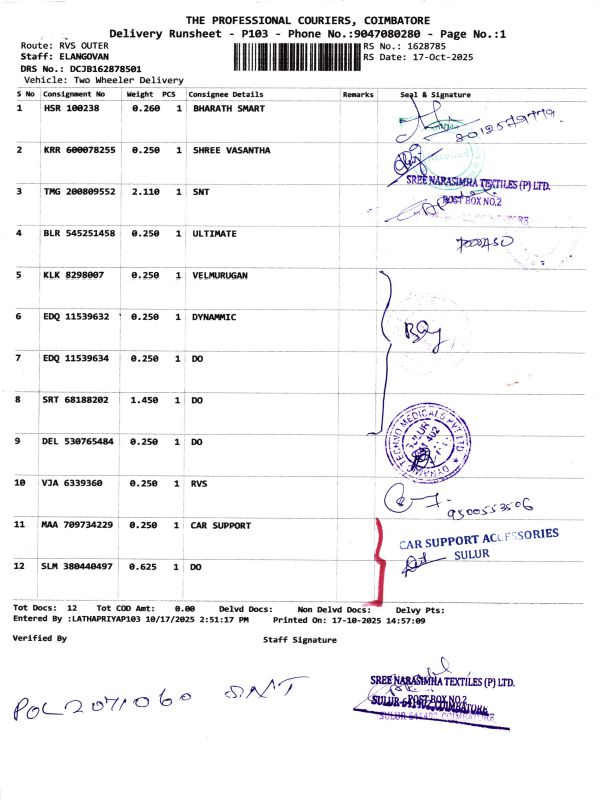 THE PROFESSIONAL COURIERS, COIMBATORE
Delivery Runsheet - P103 - Phone No.:9047080280 - Page No.:1
Route: RVS OUTER RS No.: 1628785
Staff: ELANGOVAN RS Date: 17-Oct-2025
DRS No.: DCJB162878501
Vehicle: Two Wheeler Delivery
S No Consignment No Weight PCS Consignee Details Remarks Seal & Signature
1 HSR 100238 0.260 1 BHARATH SMART
2 KRR 600078255 0.250 1 SHREE VASANTHA
SREE NARASIMHA TEXTILES (P) LTD.
3 TMG 200809552 2.110 1 SNT
POST BOX NO.2
4 BLR 545251458 0.250 1 ULTIMATE
5 KLK 8298007 0.250 1 VELMURUGAN
6 EDQ 11539632 0.250 1 DYNAMMIC
7 EDQ 11539634 0.250 1 DO
8 SRT 68188202 1.450 1 DO
DYNAMIC TECHNO MEDICALS PVT LTD
SULUR
9 DEL 530765484 0.250 1 DO
10 VJA 6339360 0.250 1 RVS
9500553506
11 MAA 709734229 0.250 1 CAR SUPPORT
CAR SUPPORT ACCESSORIES
SULUR
12 SLM 380440497 0.625 1 DO
Tot Docs: 12 Tot COD Amt: 0.00 Delvd Docs: Non Delvd Docs: Delvy Pts:
Entered By :LATHAPRIYAP103 10/17/2025 2:51:17 PM Printed On: 17-10-2025 14:57:09
Verified By Staff Signature
POL2071060 SNT
SREE NARASIMHA TEXTILES (P) LTD.
POST BOX NO.2
SULUR-641402 COIMBATORE